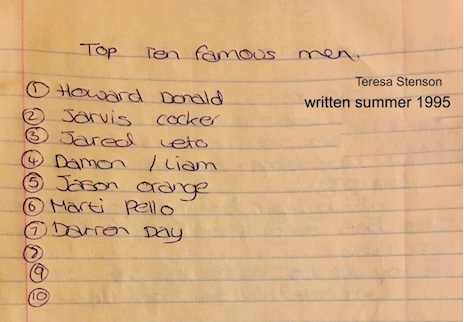 Top Ten famous men.
Teresa Stenson
written summer 1995
① Howard Donald
② Jarvis cocker
③ Jared Leto
④ Damon / Liam
⑤ Jason orange
⑥ Marti Pello
⑦ Darren Day
⑧
⑨
⑩